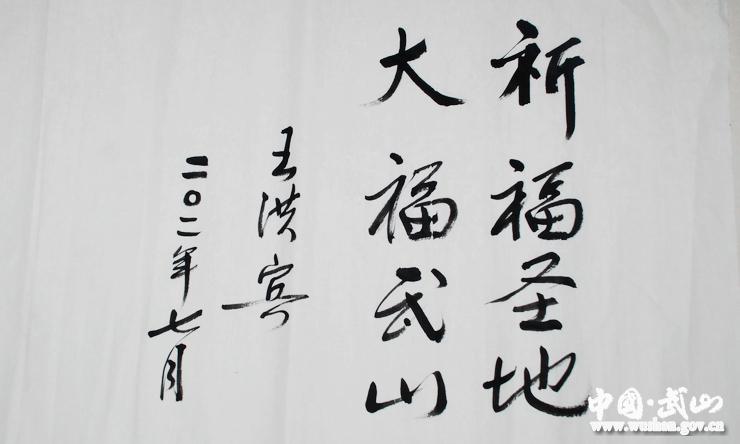 祈福圣地
大福武山
王洪宾
二〇一二年七月
中国·武山
www.wushan.gov.cn